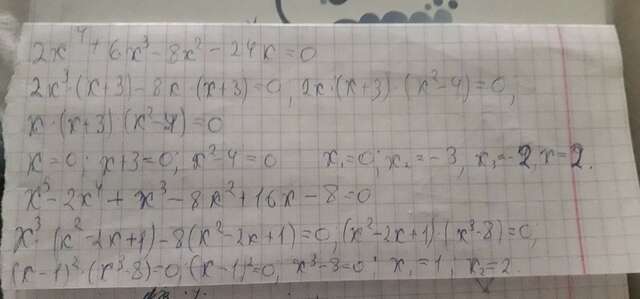 2x⁴ + 6x³ - 8x² - 24x = 0
2x³·(x+3) - 8x·(x+3) = 0, 2x·(x+3)·(x²-4) = 0,
x·(x+3)(x²-4) = 0
x = 0; x+3 = 0; x²-4 = 0 x₁ = 0; x₂ = -3, x₃ = -2, x = 2.
x⁵ - 2x⁴ + x³ - 8x² + 16x - 8 = 0
x³·(x²-2x+1) - 8(x²-2x+1) = 0, (x²-2x+1)·(x³-8) = 0;
(x-1)²·(x³-8) = 0, (x-1)² = 0, x³-8 = 0; x₁ = 1, x₂ = 2.